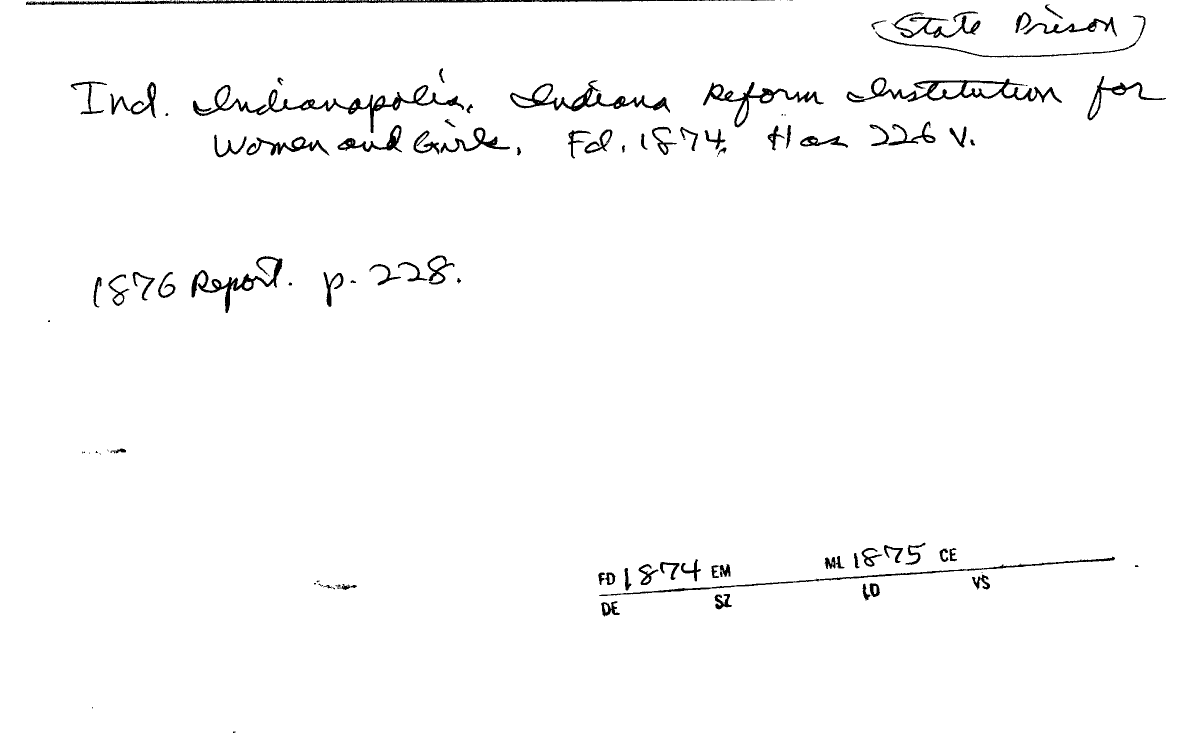 State Prison
Ind. Indianapolis. Indiana Reform Institution for
Women and Girls. Fd. 1874. Has 226 V.
1876 Report. p. 228.
FD 1874 EM ML 1875 CE
DE SZ LO VS